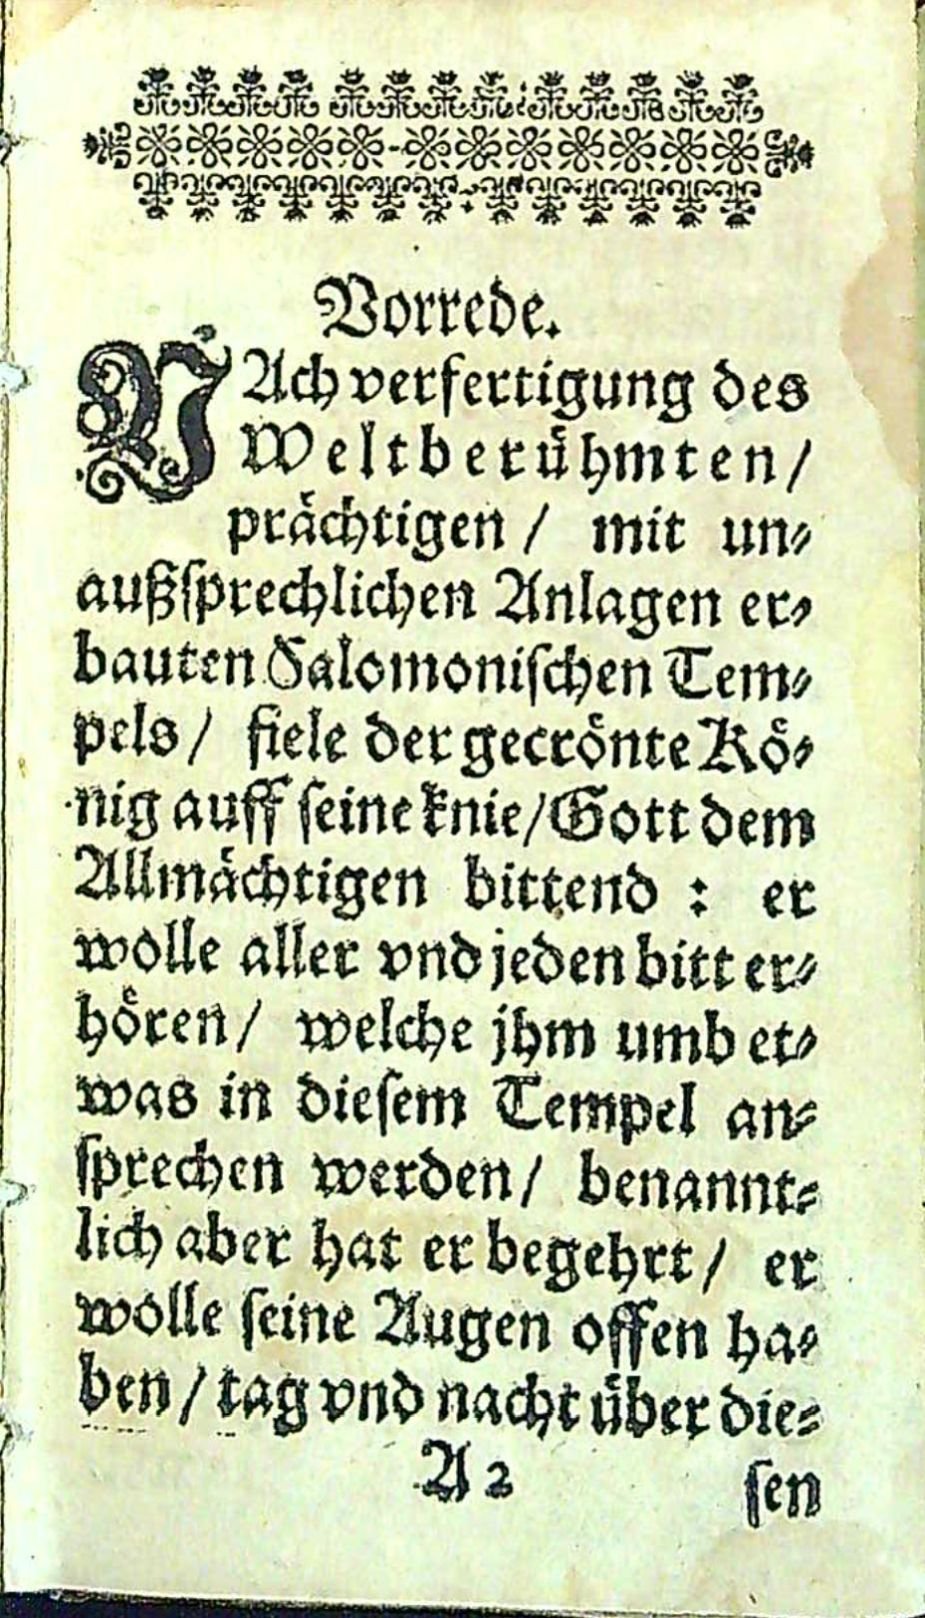 Vorrede.
NAch verfertigung des
Weltberühmten/
prächtigen / mit un⸗
außſprechlichen Anlagen er⸗
bauten Salomoniſchen Tem⸗
pels / fiele der gecrönte Kö⸗
nig auff ſeine knie/Gott dem
Allmächtigen bittend : er
wolle aller vnd jeden bitt er⸗
hören / welche jhm umb et⸗
was in dieſem Tempel an⸗
ſprechen werden / benannt⸗
lich aber hat er begehrt / er
wolle ſeine Augen offen ha⸗
ben / tag vnd nacht über die⸗
A 2 ſen